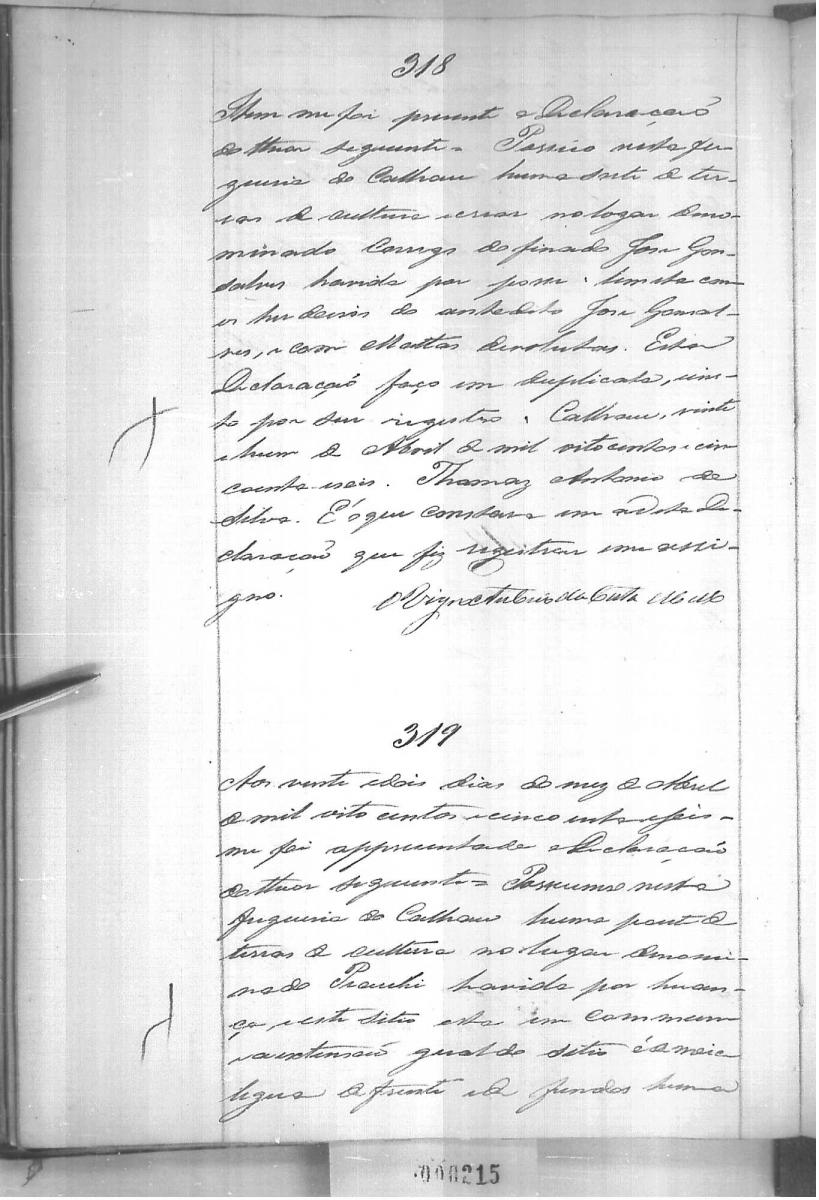 318
Item me foi presente a Declaração
do theor seguinte = Possuo nesta fre-
guesia do Calhau huma sorte de ter-
ras de cultura e criar no logar deno-
minado Corrego do finado Jose Gon-
salves havida por posse. limita com
os herdeiros do antedito Jose Gonsal-
ves, e com Mattas devolutas. Esta
Declaração faço em duplicata, 
to por seu registro. Calhau, vinte
e hum de Abril de mil oito centos e cin
coenta e seis. Thomaz Antonio da
Silva. E' o que constava em a dita De-
claração que fiz registrar e me assi-
gno.
O Vigrº Antonio da Costa
319
Aos vinte e dois dias do mez de Abril
de mil oito centos e cincoenta e seis =
me foi appresentada a Declaração
do theor seguinte = Possuimos nesta
freguesia do Calhau huma parte de
terras de cultura no lugar denomi-
nado havida por heran-
ça e este sitio esta em commum
e a extensão geral do sitio é de meia
legua de frente e de fundos huma
000215